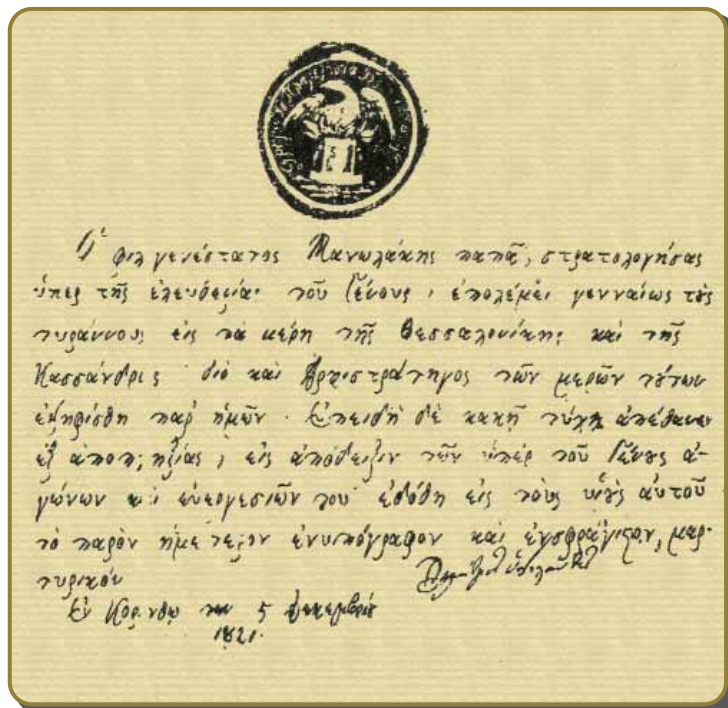 Ὁ φιλγενέστατος Μανωλάκης παπᾶ, στρατολογήσας
ὑπὲρ τῆς ἐλευθερίας τοῦ Γένους, ἐπολέμει γενναίως τοὺς
τυράννους εἰς τὰ μέρη τῆς Θεσσαλονίκης καὶ τῆς
Κασσάνδρας διὸ καὶ Ἀρχιστράτηγος τῶν μερῶν τούτων
ἐψηφίσθη παρ' ἡμῶν. Ἐπειδὴ δὲ κακῇ τύχῃ ἀπέθανεν
ἐξ ἀποπληξίας, εἰς ἀπόδειξιν τῶν ὑπὲρ τοῦ Γένους ἀ-
γώνων καὶ εὐεργεσιῶν του ἐδόθη εἰς τοὺς υἱοὺς αὐτοῦ
τὸ παρὸν ἡμέτερον ἐνυπόγραφον καὶ ἐνσφράγιστον μαρ-
τυρικόν
Ἐν Κορίνθῳ τῇ 5 Δεκεμβρίου
1821.